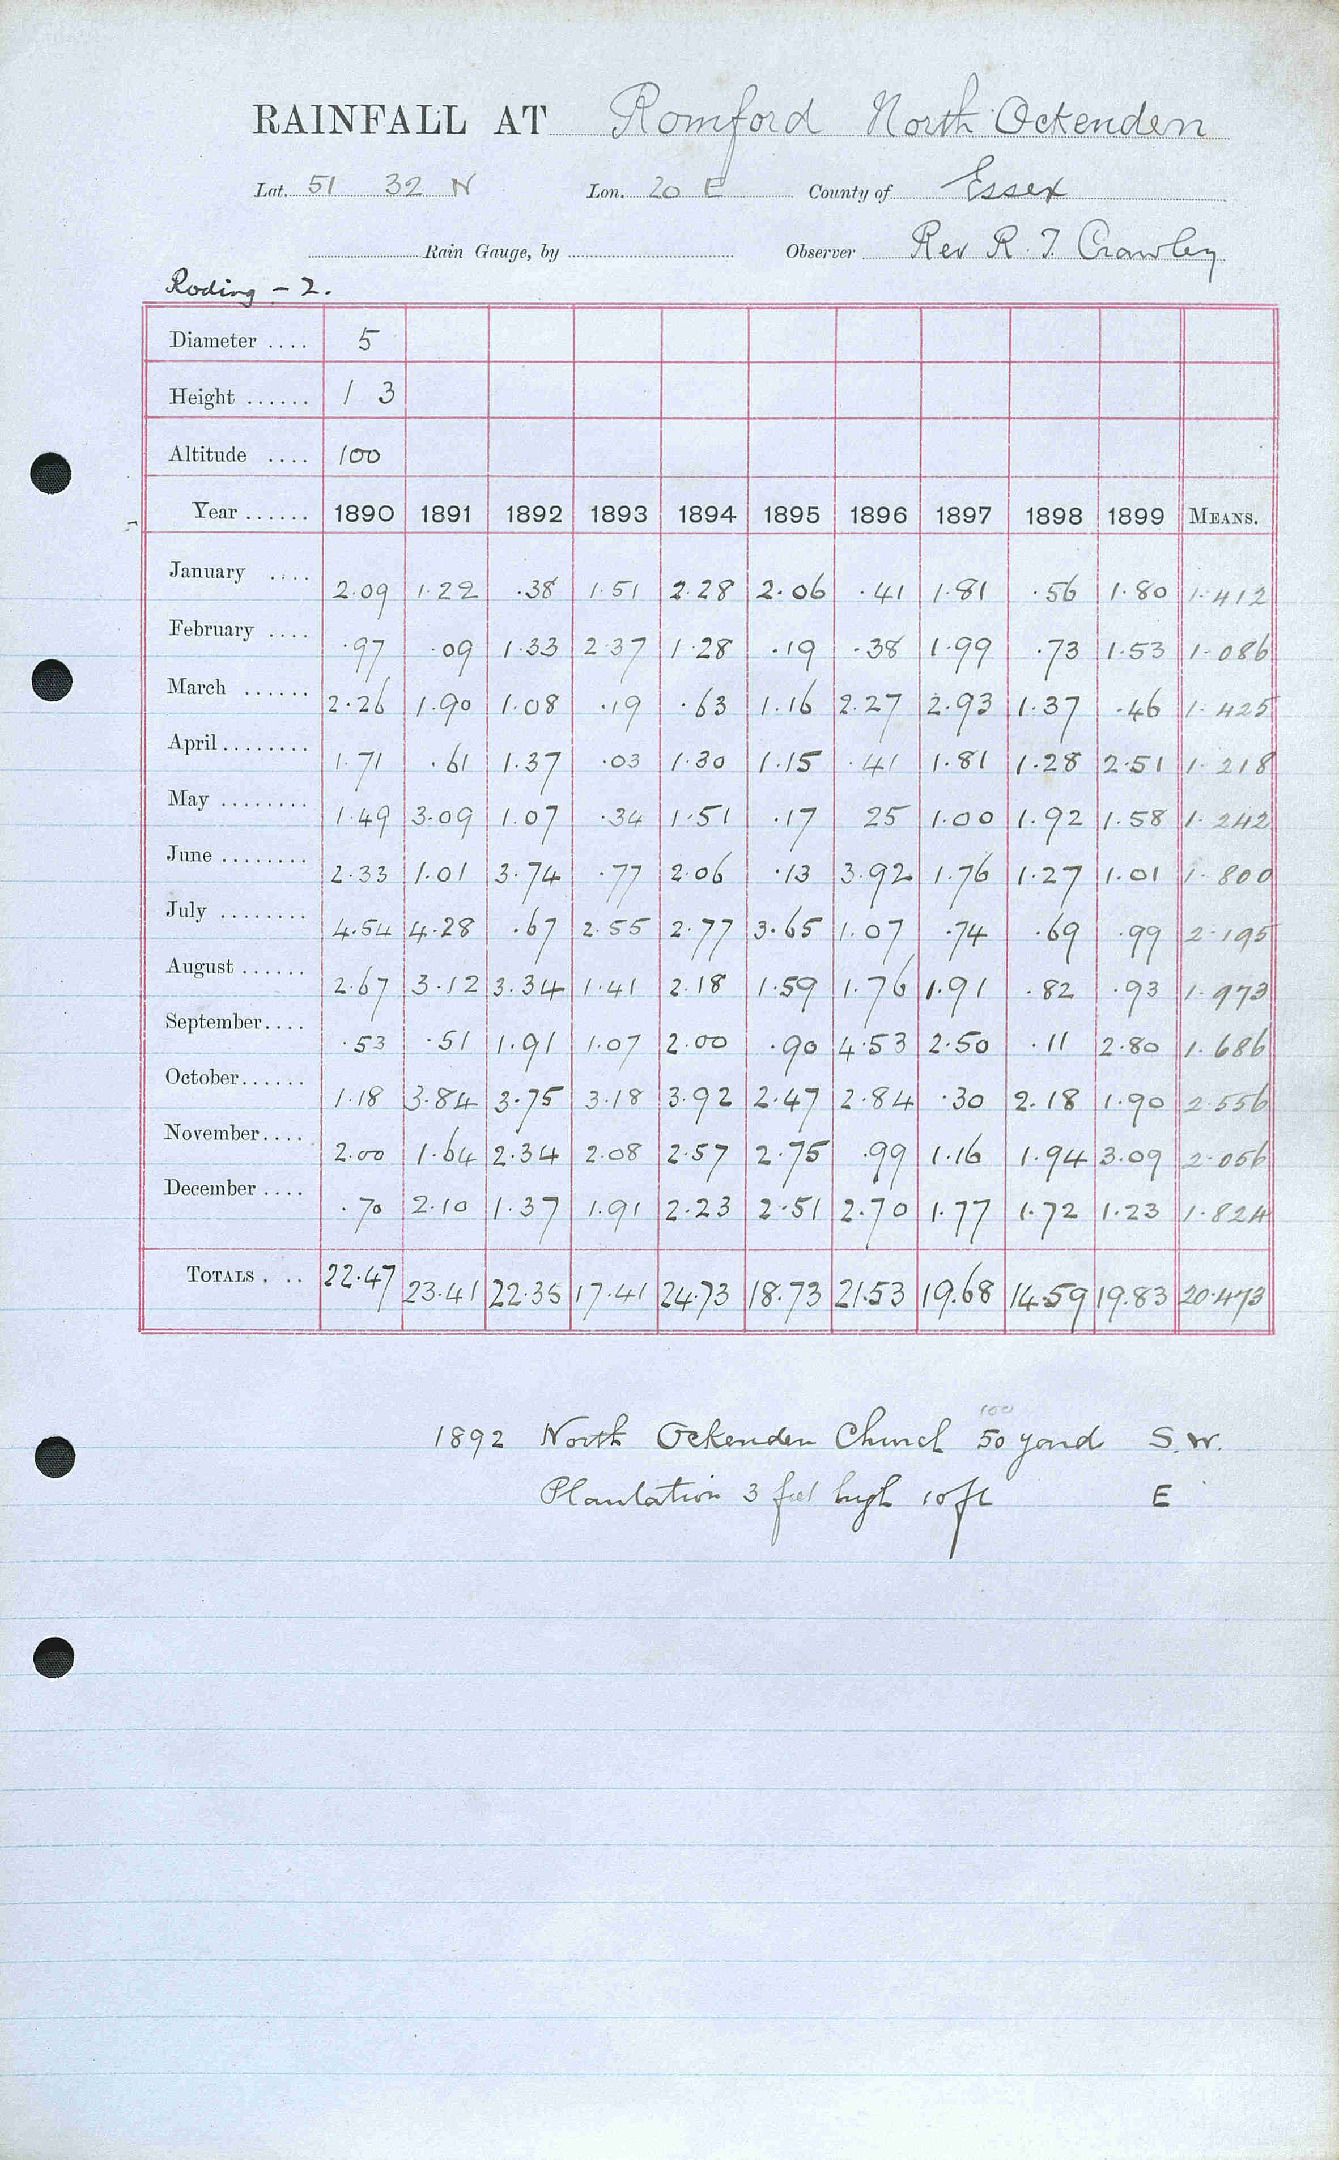 RAINFALL AT Romford North Ockenden
Lat. 51 32 N Lon. 20 E County of Essex
Rain Gauge, by Observer Rev R. T. Crawley
Roding - 2.
Diameter .... 5
Height ...... 1 3
Altitude .... 100
Year ...... 1890 1891 1892 1893 1894 1895 1896 1897 1898 1899 MEANS.
January .... 2.09 1.22 .38 1.51 2.28 2.06 .41 1.81 .56 1.80 1.412
February .... .97 .09 1.33 2.37 1.28 .19 .38 1.99 .73 1.53 1.086
March ...... 2.26 1.90 1.08 .19 .63 1.16 2.27 2.93 1.37 .46 1.425
April ........ 1.71 .61 1.37 .03 1.30 1.15 .41 1.81 1.28 2.51 1.218
May ........ 1.49 3.09 1.07 .34 1.51 .17 25 1.00 1.92 1.58 1.242
June ........ 2.33 1.01 3.74 .77 2.06 .13 3.92 1.76 1.27 1.01 1.800
July ........ 4.54 4.28 .67 2.55 2.77 3.65 1.07 .74 .69 .99 2.195
August ...... 2.67 3.12 3.34 1.41 2.18 1.59 1.76 1.91 .82 .93 1.973
September.... .53 .51 1.91 1.07 2.00 .90 4.53 2.50 .11 2.80 1.686
October...... 1.18 3.84 3.75 3.18 3.92 2.47 2.84 .30 2.18 1.90 2.556
November.... 2.00 1.64 2.34 2.08 2.57 2.75 .99 1.16 1.94 3.09 2.056
December .... .70 2.10 1.37 1.91 2.23 2.51 2.70 1.77 1.72 1.23 1.824
TOTALS . .. 22.47 23.41 22.35 17.41 24.73 18.73 21.53 19.68 14.59 19.83 20.473
100
1892 North Ockenden Church 50 yard S.W.
Plantation 3 feet high 10 ft E